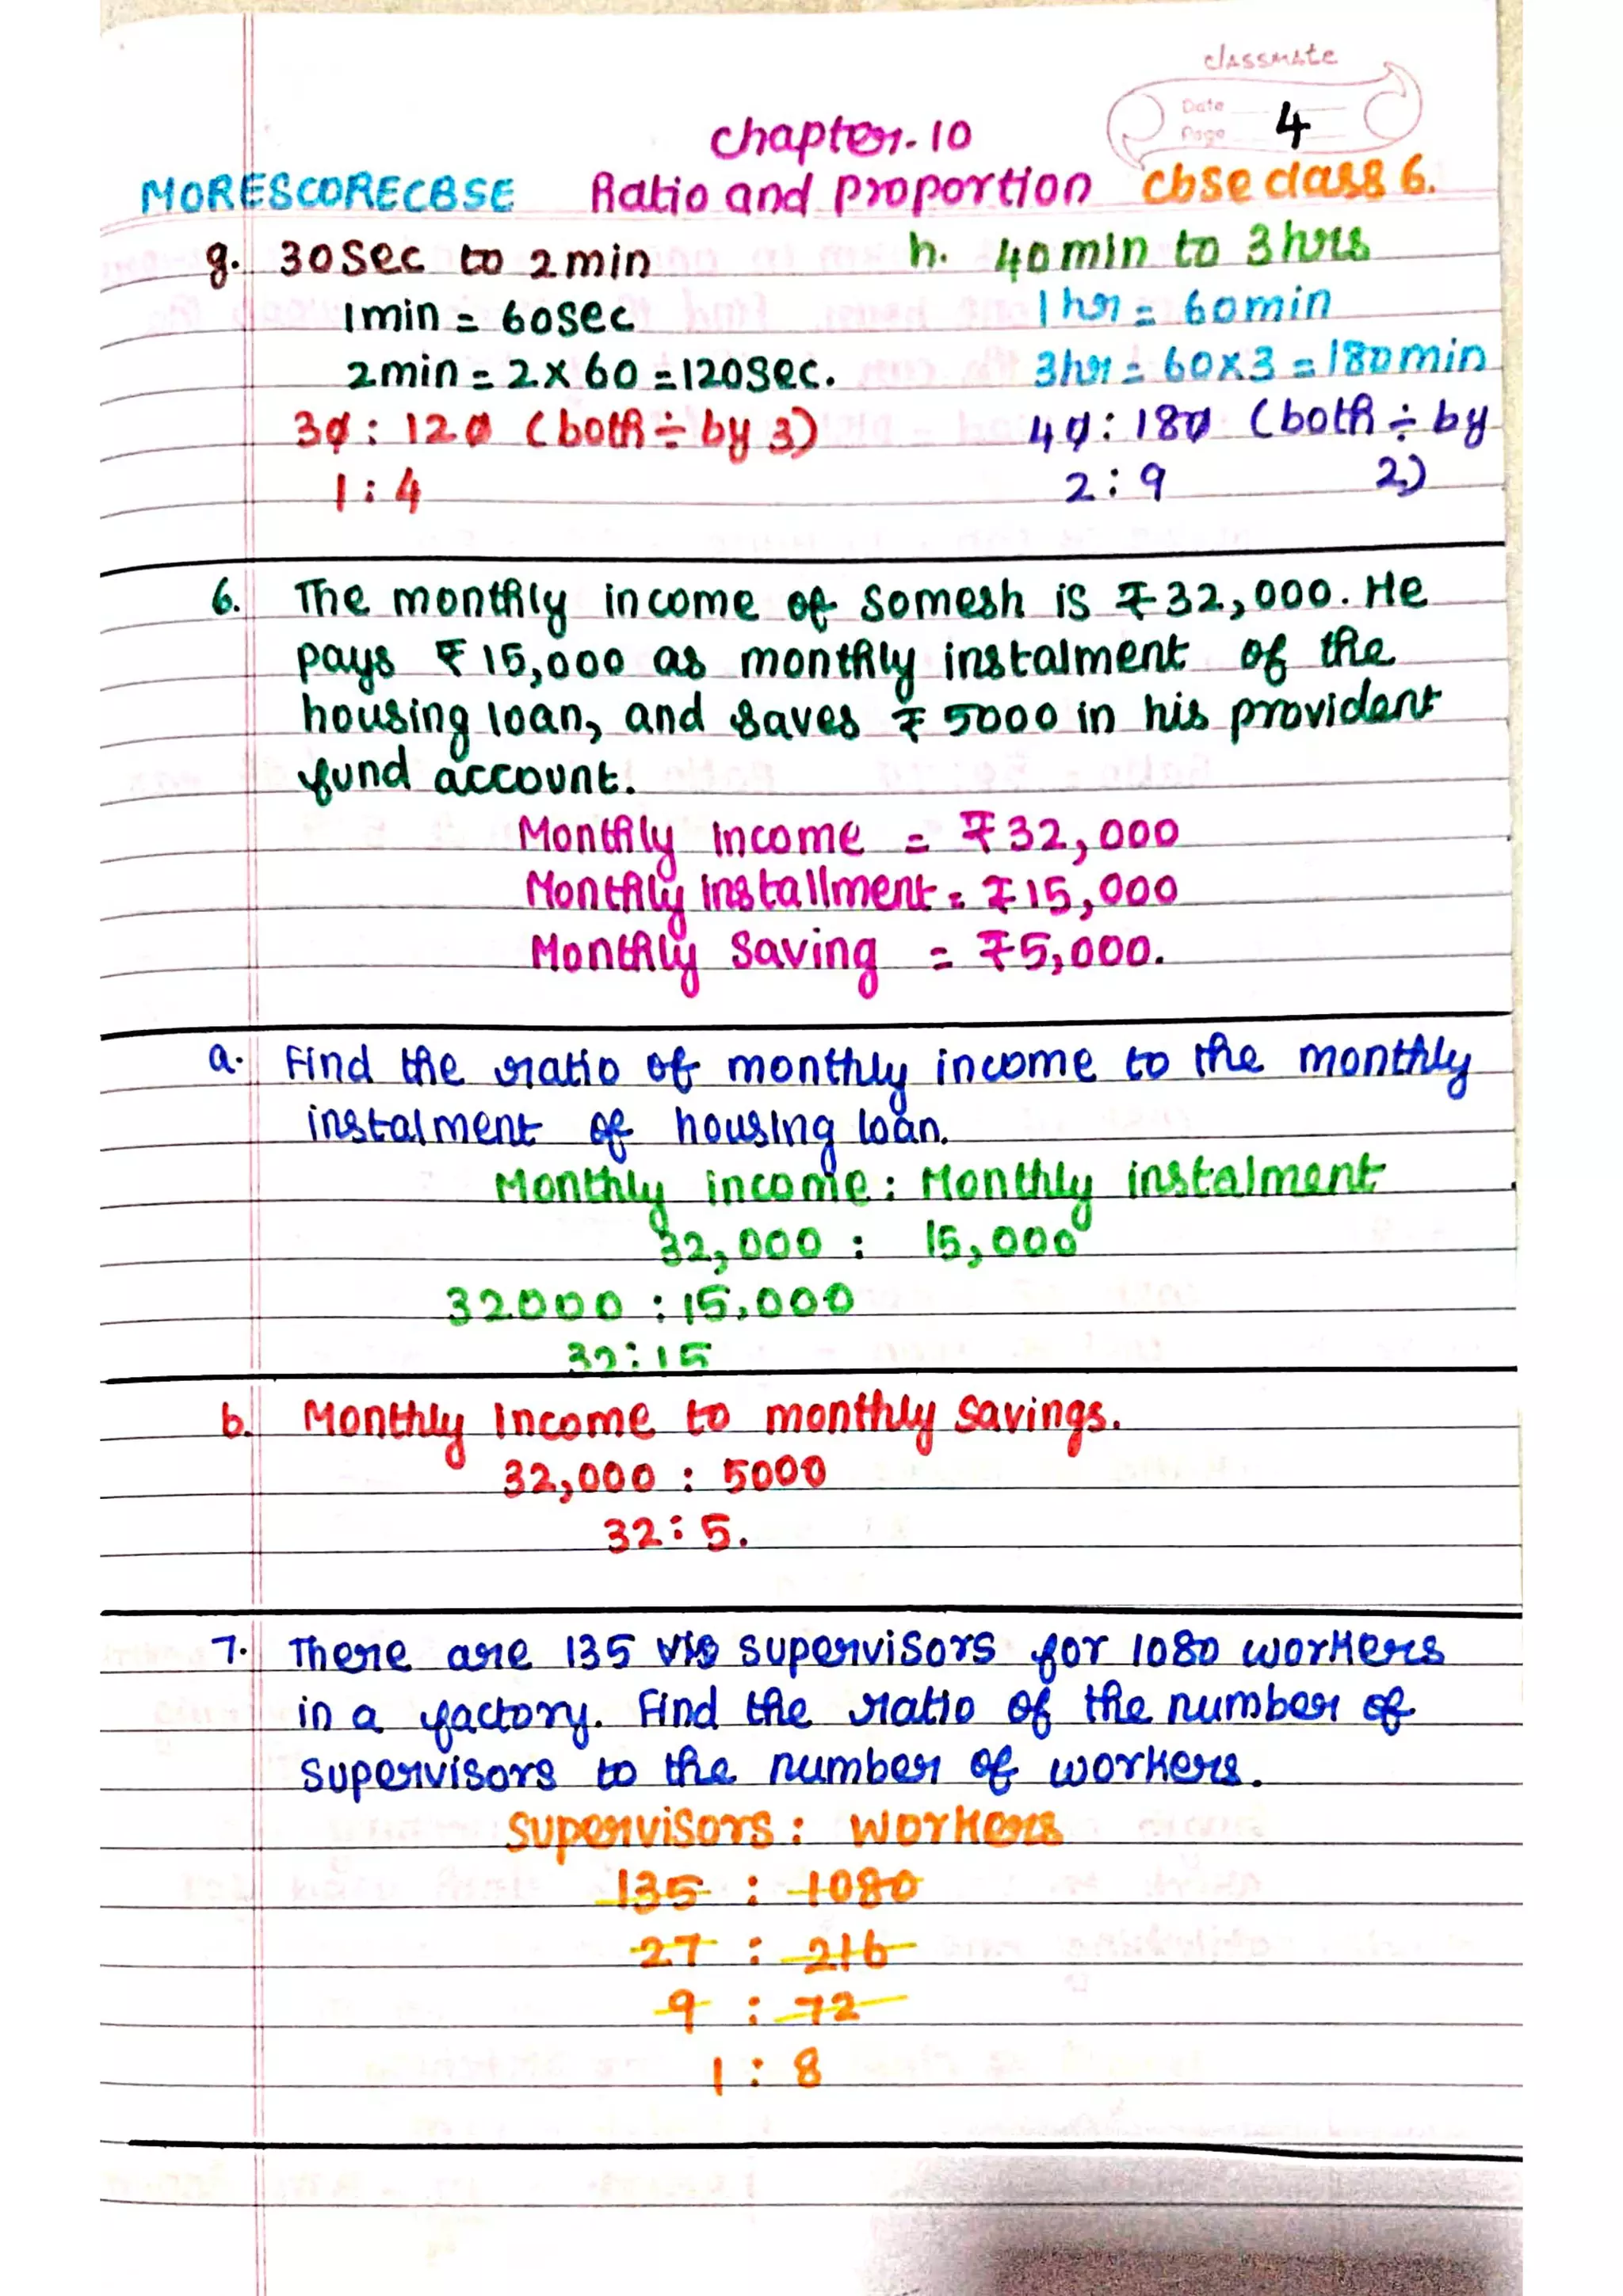 classmate
Date
Page 4
chapter-10
MORESCORECBSE Ratio and proportion cbse class 6.
g. 30sec to 2min
1min = 60sec
2min = 2x60 = 120sec.
30 : 120 (both ÷ by 3)
1 : 4
h. 40min to 3hrs
1hr = 60min
3hr = 60x3 = 180min
40 : 180 (both ÷ by
2 : 9 2)
6. The monthly income of Somesh is ₹32,000. He
pays ₹15,000 as monthly instalment of the
housing loan, and saves ₹5000 in his provident
fund account.
Monthly Income = ₹32,000
Monthly Installment = ₹15,000
Monthly Saving = ₹5,000.
a. Find the ratio of monthly income to the monthly
instalment of housing loan.
Monthly income : Monthly instalment
32,000 : 15,000
32000 : 15,000
32:15
b. Monthly Income to monthly savings.
32,000 : 5000
32:5.
7. There are 135 supervisors for 1080 workers
in a factory. Find the ratio of the number of
supervisors to the number of workers.
supervisors : workers
135 : 1080
27 : 216
9 : 72
1 : 8